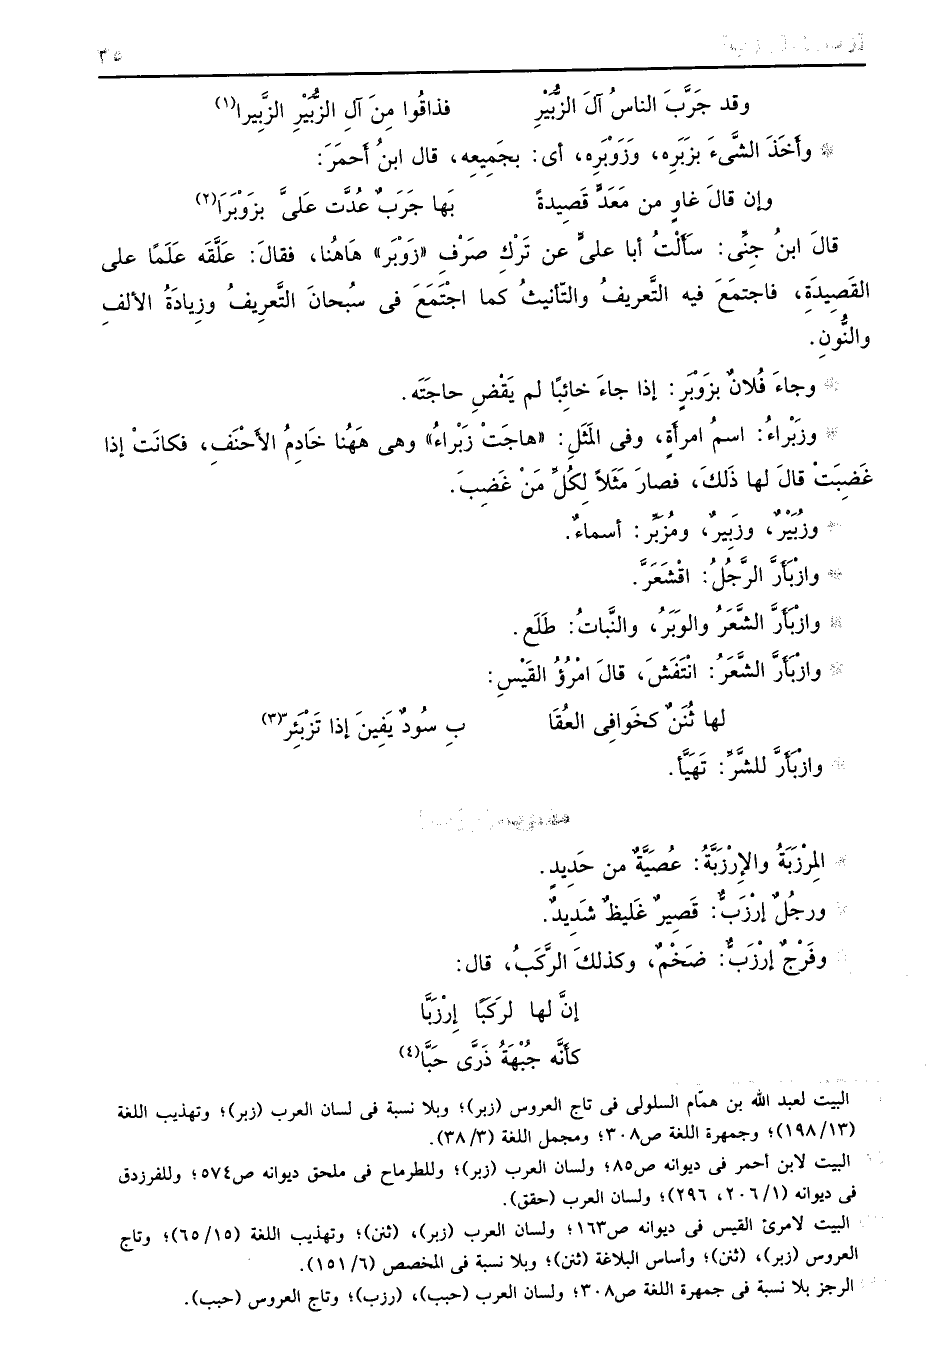 ٣٥
وقد جَرَّبَ الناسُ آلَ الزُّبَيْرِ فذاقُوا مِنَ آلِ الزُّبَيْرِ الزَّبِيرا(١)
* وأَخَذَ الشَّىءَ بزَبَرِه، وَزَوْبَرِه، أى: بجَمِيعِه، قال ابنُ أحمَرَ:
وإن قالَ غاوٍ من مَعَدٍّ قَصِيدةً بَها جَرَبٌ عُدَّت عَلَىَّ بزَوْبَرَا(٢)
قالَ ابنُ جِنِّى: سَأَلْتُ أبا علىٍّ عن تَرْكِ صَرْفِ «زَوْبَر» هَاهُنا، فقالَ: عَلَّقَه عَلَمًا على
القَصِيدَةِ، فاجتمَعَ فيه التَّعريفُ والتّأنيثُ كما اجْتَمَعَ فى سُبحانَ التَّعرِيفُ وزيادَةُ الألفِ
والنُّونِ.
* وجاءَ فُلانٌ بزَوْبَرٍ: إذا جاءَ خائبًا لم يَقْضِ حاجتَه.
* وزَبْراءُ: اسمُ امرأَةٍ، وفى المَثَلِ: «هاجَتْ زَبْراءُ» وهى هَهُنا خَادِمُ الأَحْنَفِ، فكانَتْ إذا
غَضِبَتْ قالَ لها ذَلكَ، فصارَ مَثَلاً لكُلِّ مَنْ غَضِبَ.
* وزُبَيْرٌ، وزَبِيرٌ، ومُزَبِّر: أسماءٌ.
* وازْبَأَرَّ الرَّجُلُ: اقْشَعَرَّ.
* وازْبَأَرَّ الشَّعَرُ والوَبَرُ، والنَّباتُ: طَلَع.
* وازْبَأَرَّ الشَّعَرُ: انْتَفَشَ، قالَ امْرُؤُ القَيْسِ:
لها ثُنَنٌ كخَوافِى العُقَا بِ سُودٌ يَفِينَ إذا تَزْبَئِر(٣)
* وازْبَأَرَّ للشَّرِّ: تَهَيَّأ.
* المِرْزَبَةُ والإِرْزَبَّةُ: عُصَيَّةٌ من حَدِيدٍ.
* ورجُلٌ إرْزَبٌّ: قَصِيرٌ غَلِيظٌ شَدِيدٌ.
* وفَرْجٌ إرْزَبٌّ: ضَخْمٌ، وكذلكَ الرَّكَبُ، قال:
إنَّ لها لرَكَبًا إرْزَبَّا
كأنَّه جُبْهَةُ ذَرَّى حَبَّا(٤)
البيت لعبد الله بن همّام السلولى فى تاج العروس (زبر)؛ وبلا نسبة فى لسان العرب (زبر)؛ وتهذيب اللغة
(١٩٨/١٣)؛ وجمهرة اللغة ص٣٠٨؛ ومجمل اللغة (٣٨/٣).
البيت لابن أحمر فى ديوانه ص٨٥؛ ولسان العرب (زبر)؛ وللطرماح فى ملحق ديوانه ص٥٧٤؛ وللفرزدق
فى ديوانه (٢٠٦/١، ٢٩٦)؛ ولسان العرب (حقق).
البيت لامرئ القيس فى ديوانه ص١٦٣؛ ولسان العرب (زبر)، (ثنن)؛ وتهذيب اللغة (٦٥/١٥)؛ وتاج
العروس (زبر)، (ثنن)؛ وأساس البلاغة (ثنن)؛ وبلا نسبة فى المخصص (١٥١/٦).
الرجز بلا نسبة فى جمهرة اللغة ص٣٠٨؛ ولسان العرب (حبب)، (رزب)؛ وتاج العروس (حبب).